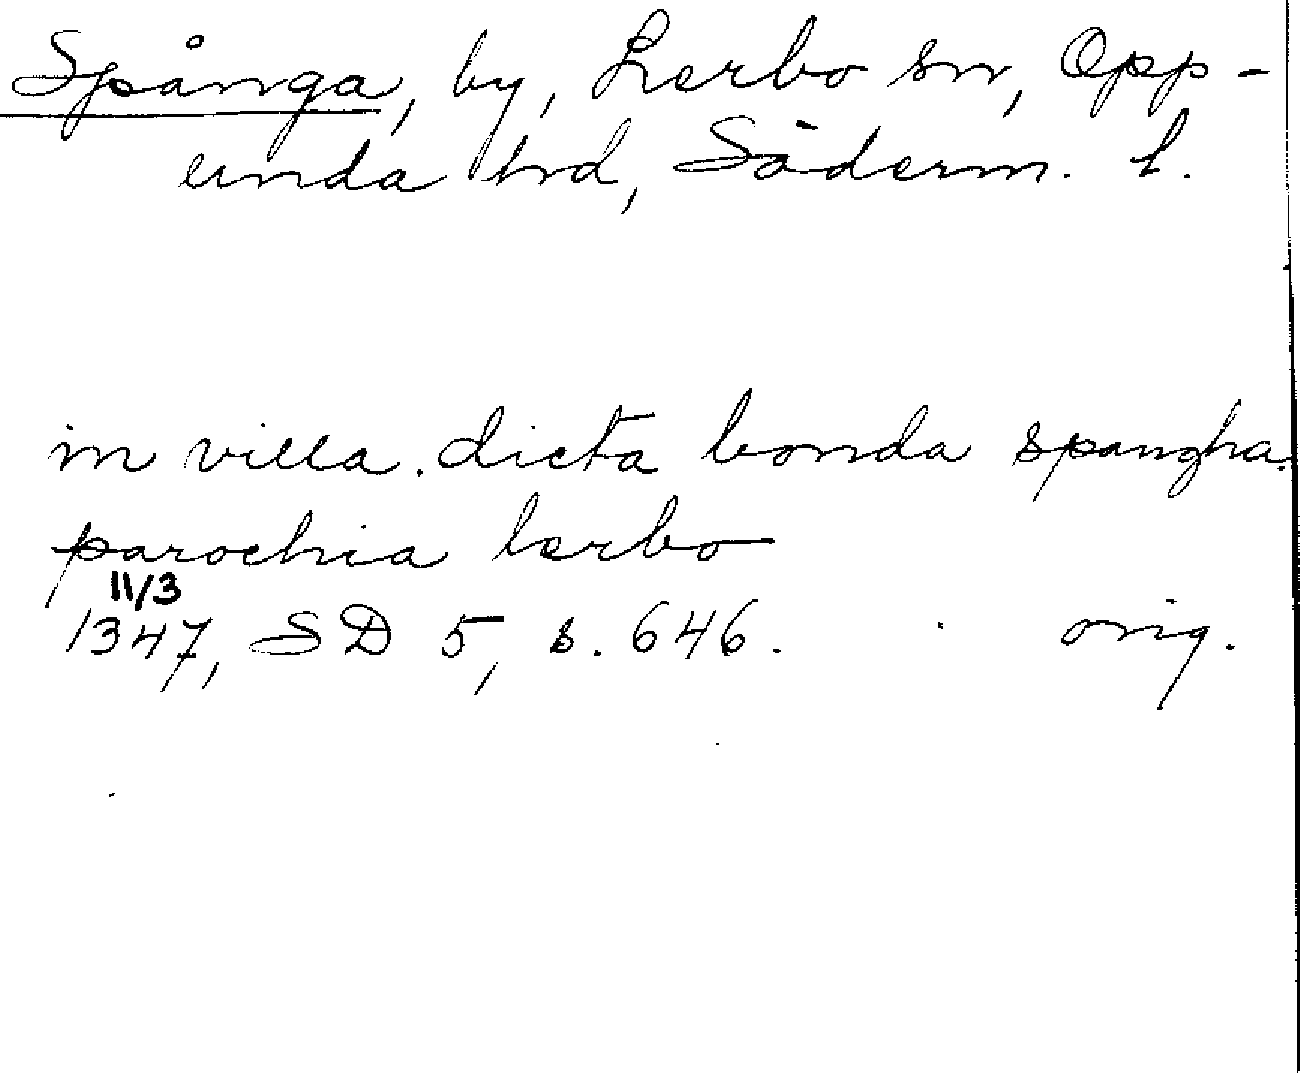 Spånga, by, Lerbo sn, Opp-
unda hd, Söderm. l.
in villa. dicta bonda spangha.
parochia lerbo
11/3
1347, SD 5, s. 646. orig.